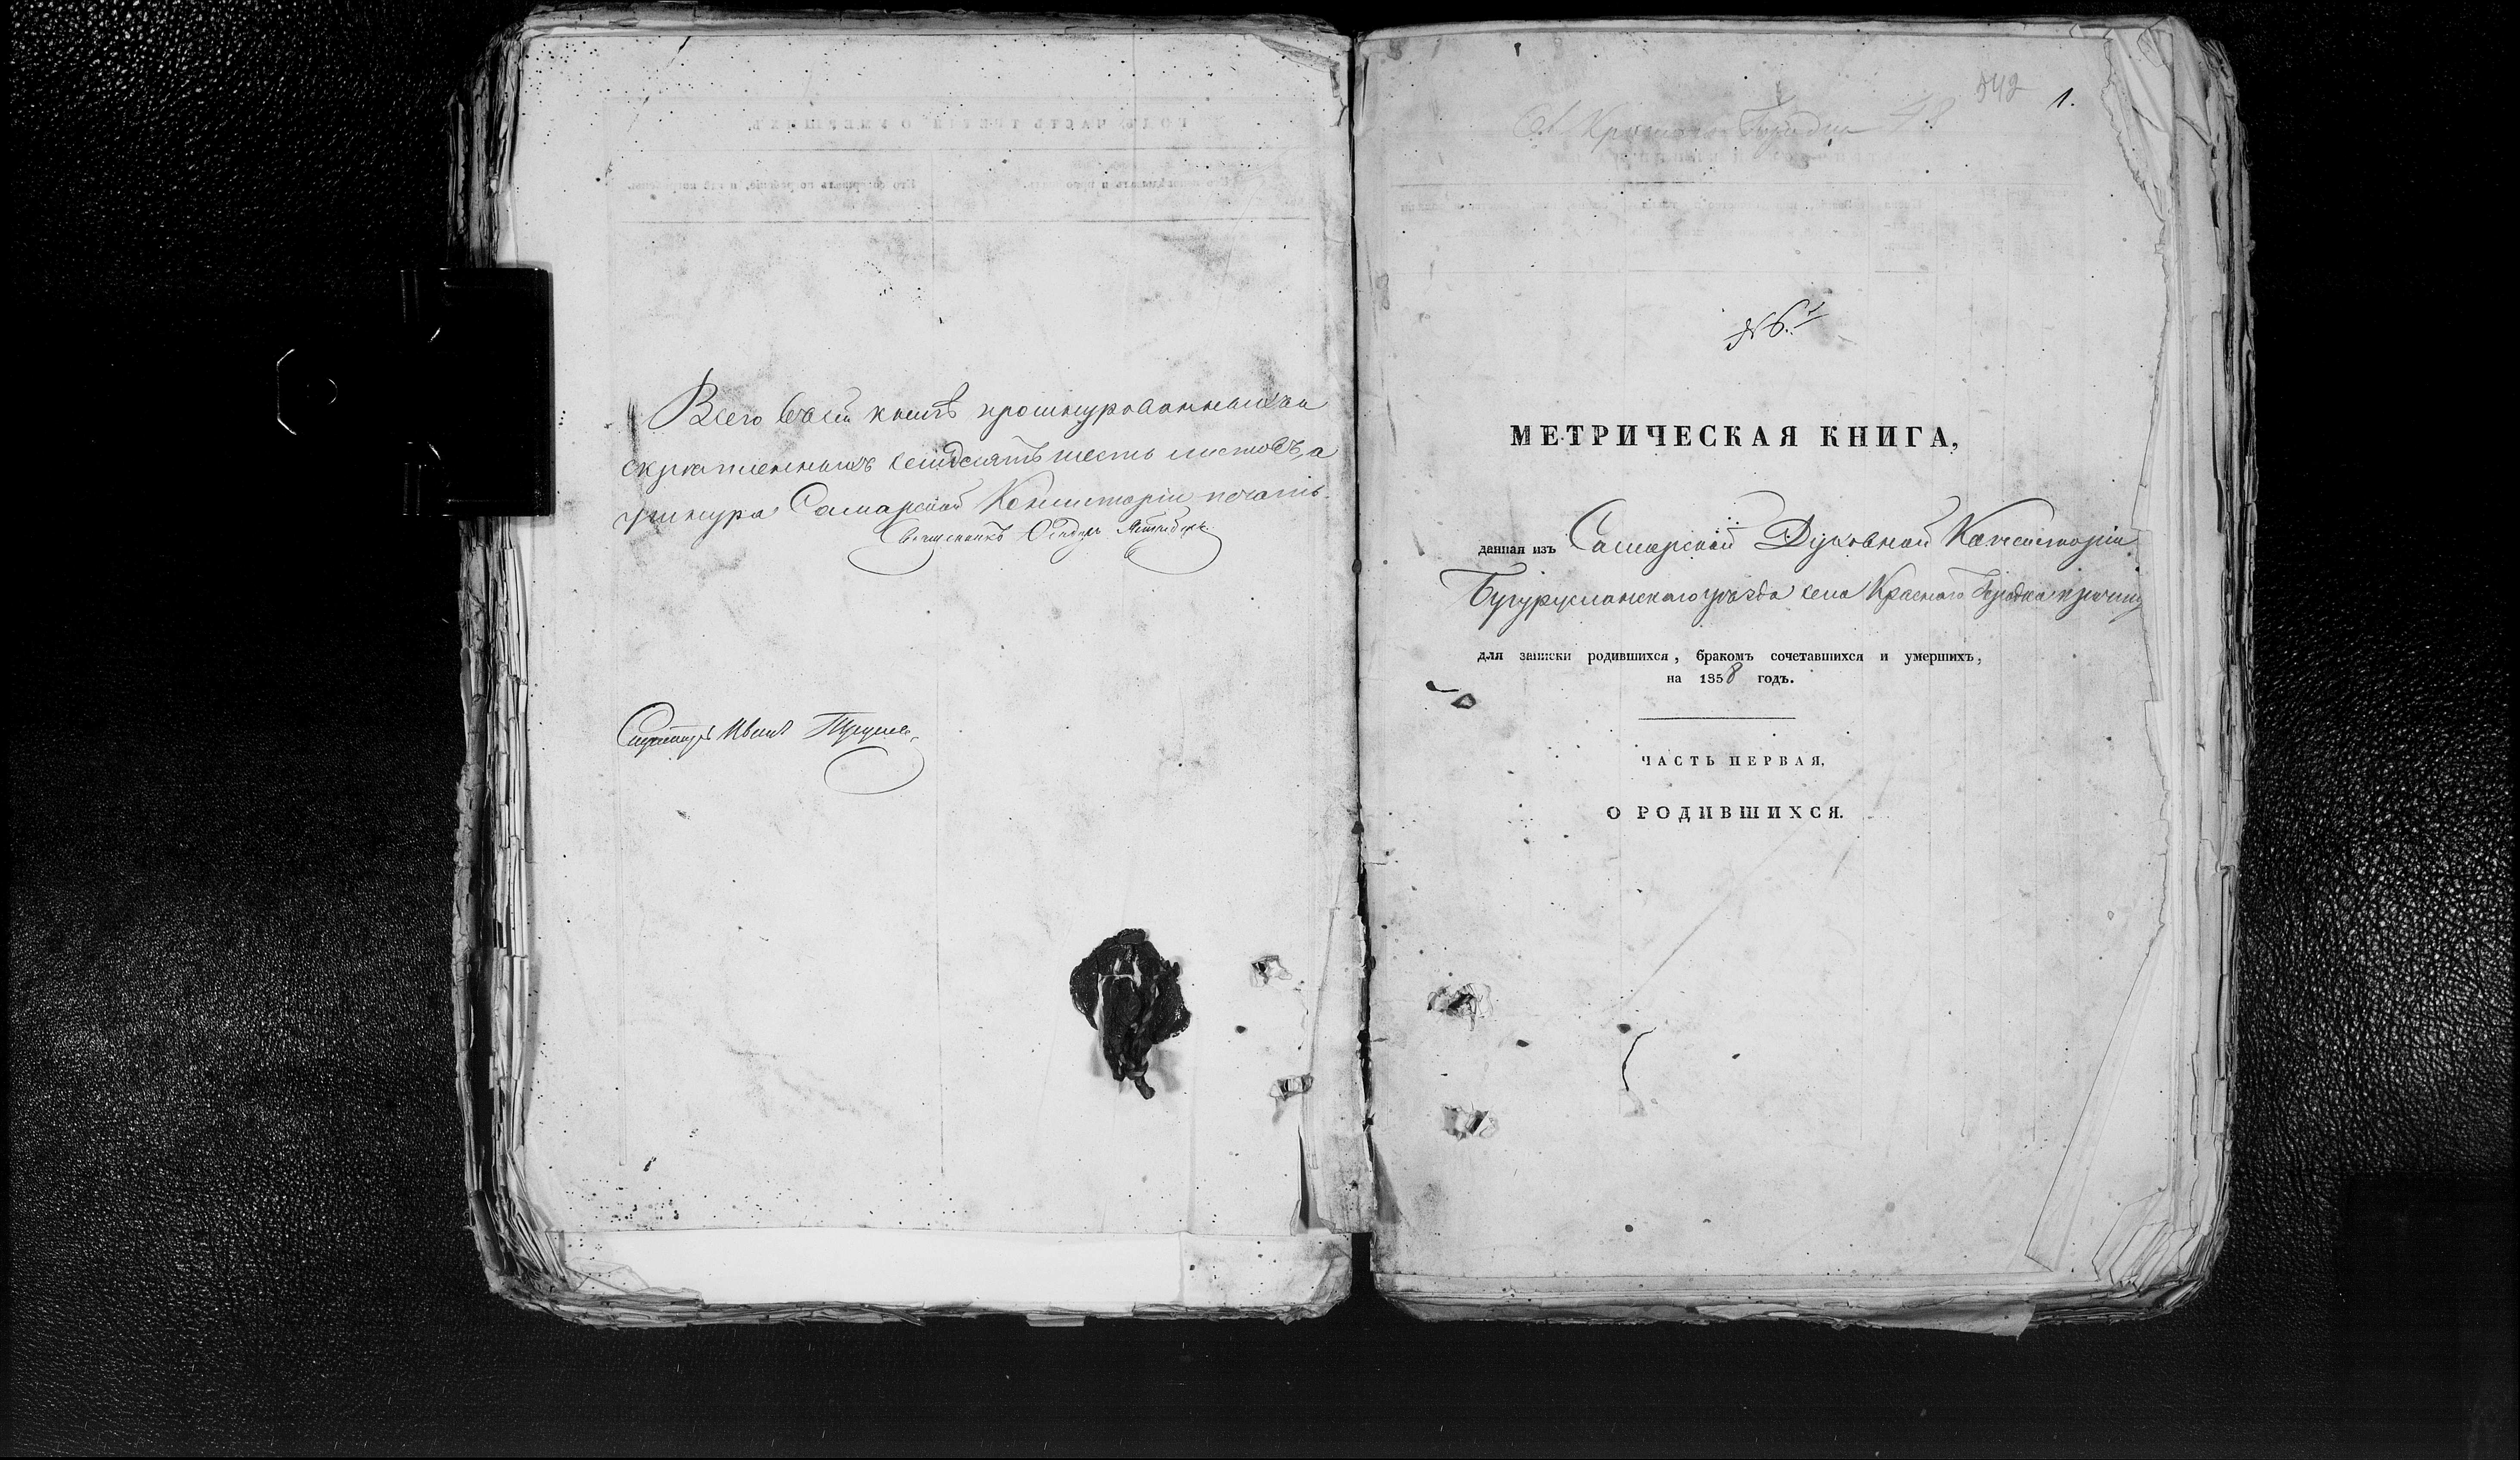 Всего въ сей книгѣ прошнурованныхъ и
скрѣпленныхъ семдесятъ шесть листовъ, а
у шнура Самарской Консисторіи печать.
Священникъ
Секретарь Иванъ
542 1.
Красн 48
№ 6.
МЕТРИЧЕСКАЯ КНИГА,
данная изъ Самарской Духовной Консисторіи
Бугурусланскаго уѣзда села Краснаго Городка причту
для записки родившихся, бракомъ сочетавшихся и умершихъ,
на 1858 годъ.
ЧАСТЬ ПЕРВАЯ,
О РОДИВШИХСЯ.